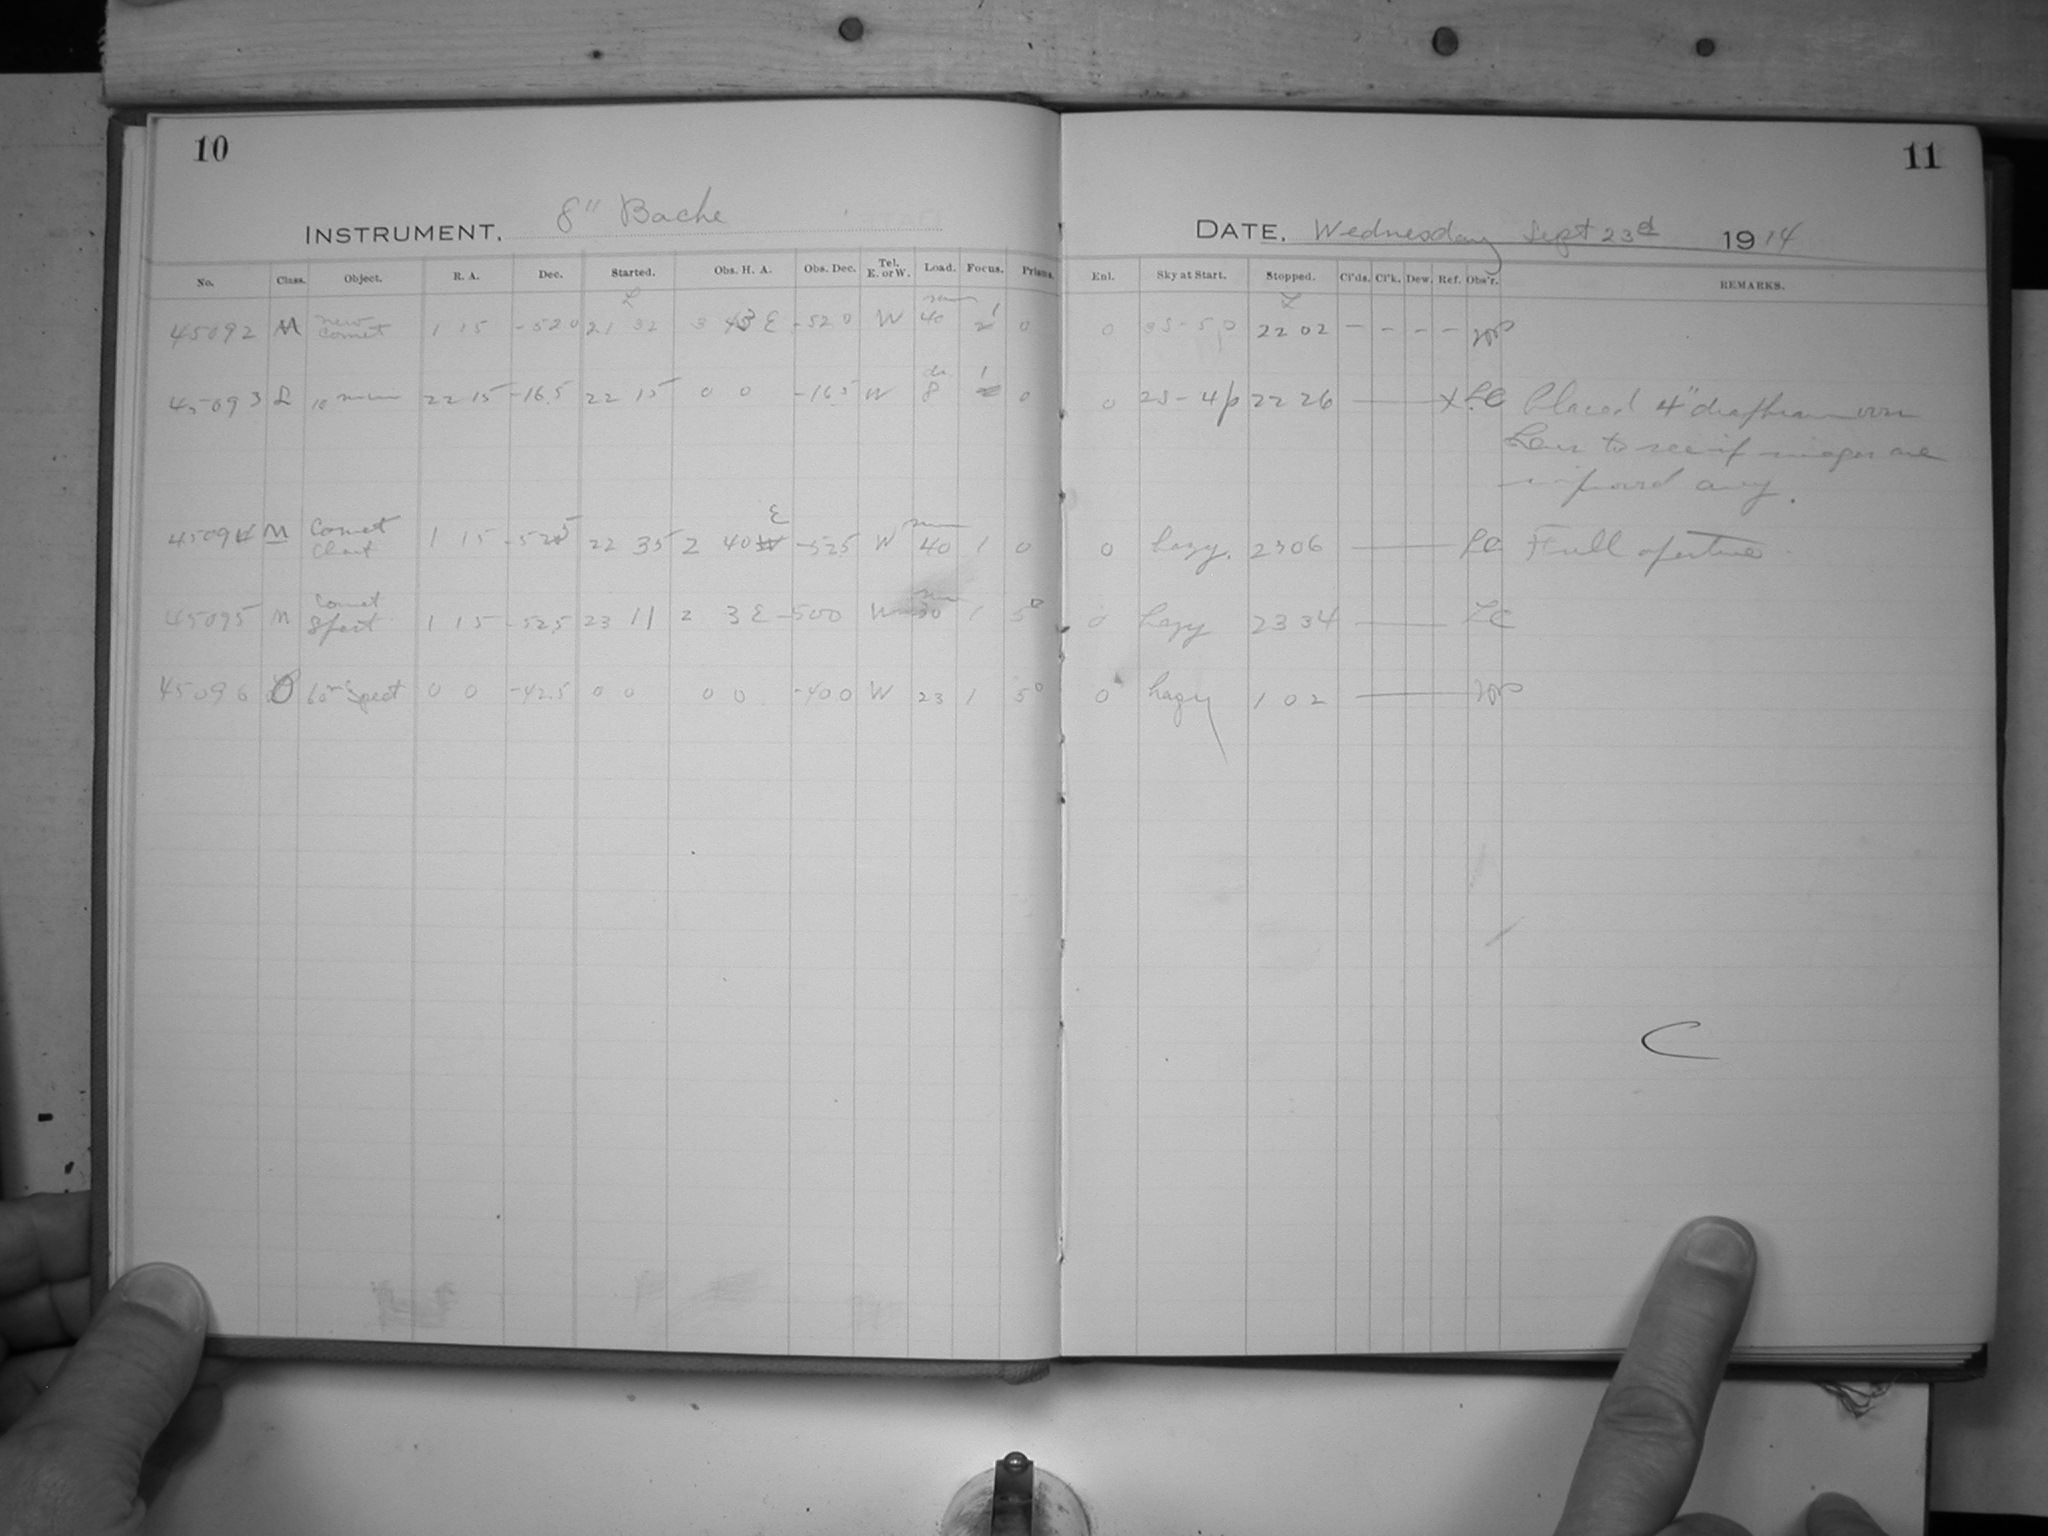 10
11
INSTRUMENT. 8" Bache
DATE. Wednesday Sept 23d 1914
No. Class. Object. R. A. Dec. Started. Obs. H. A. Obs. Dec. Tel. E. or W. Load. Focus. Prisms. Enl. Sky at Start. Stopped. Cl'ds. Cl'k. Dew. Ref. Obs'r. REMARKS.
45092 M new comet 1 15 -520 21 32 3 43 E -520 W 40 1 0 0 22 02 - - - -
45093 L 10 22 15 -16.5 22 15 0 0 -16.5 W 8 1 0 0 2S-4p 22 26 X LC Placed 4" diaphram over
Lens to see if images are
improved any.
45094 M Comet Chart 1 15 -525 22 35 2 40 E -525 W 40 1 0 0 hazy. 2306 LC Full aperture
45095 M Comet Spect 1 15 -525 23 11 2 3 E -500 W 30 1 5° 0 hazy 23 34 LC
45096 60m Spect 0 0 -42.5 0 0 0 0 -40.0 W 23 1 5° 0 hazy 1 02
C